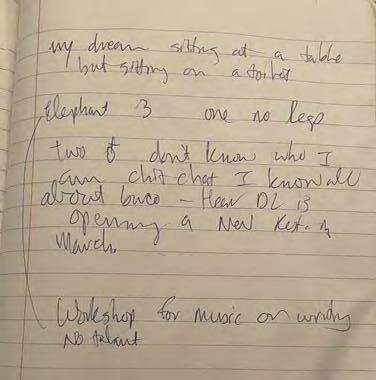 my dream sitting at a table
but sitting on a toilet
Elephant 3 one no legs
two of don't know who I
am chit chat I know all
about - Hear DL is
opening a New in
March.
Workshop for music or writing
No talent